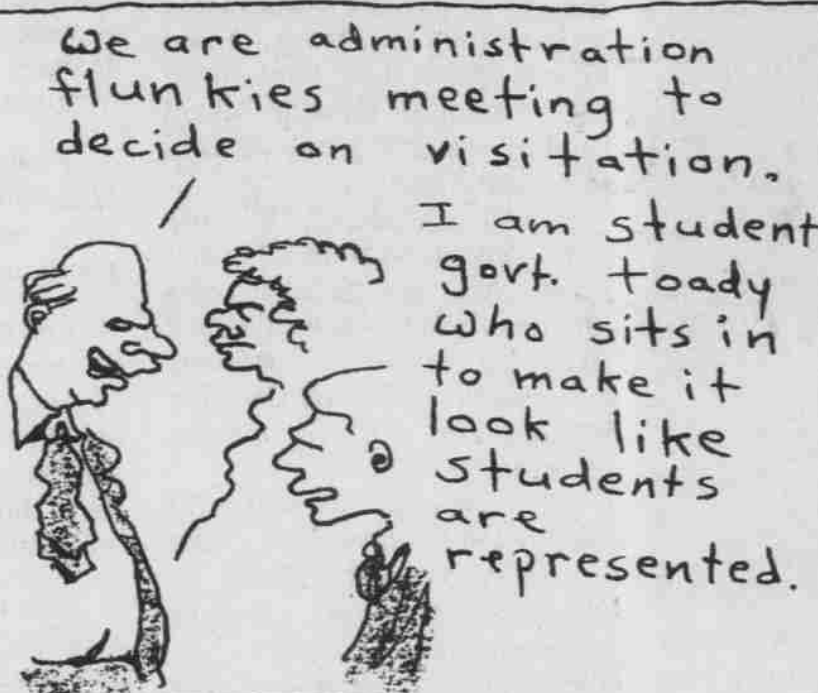 We are administration
flunkies meeting to
decide on visitation.
I am student
govt. toady
who sits in
to make it
look like
students
are
represented.